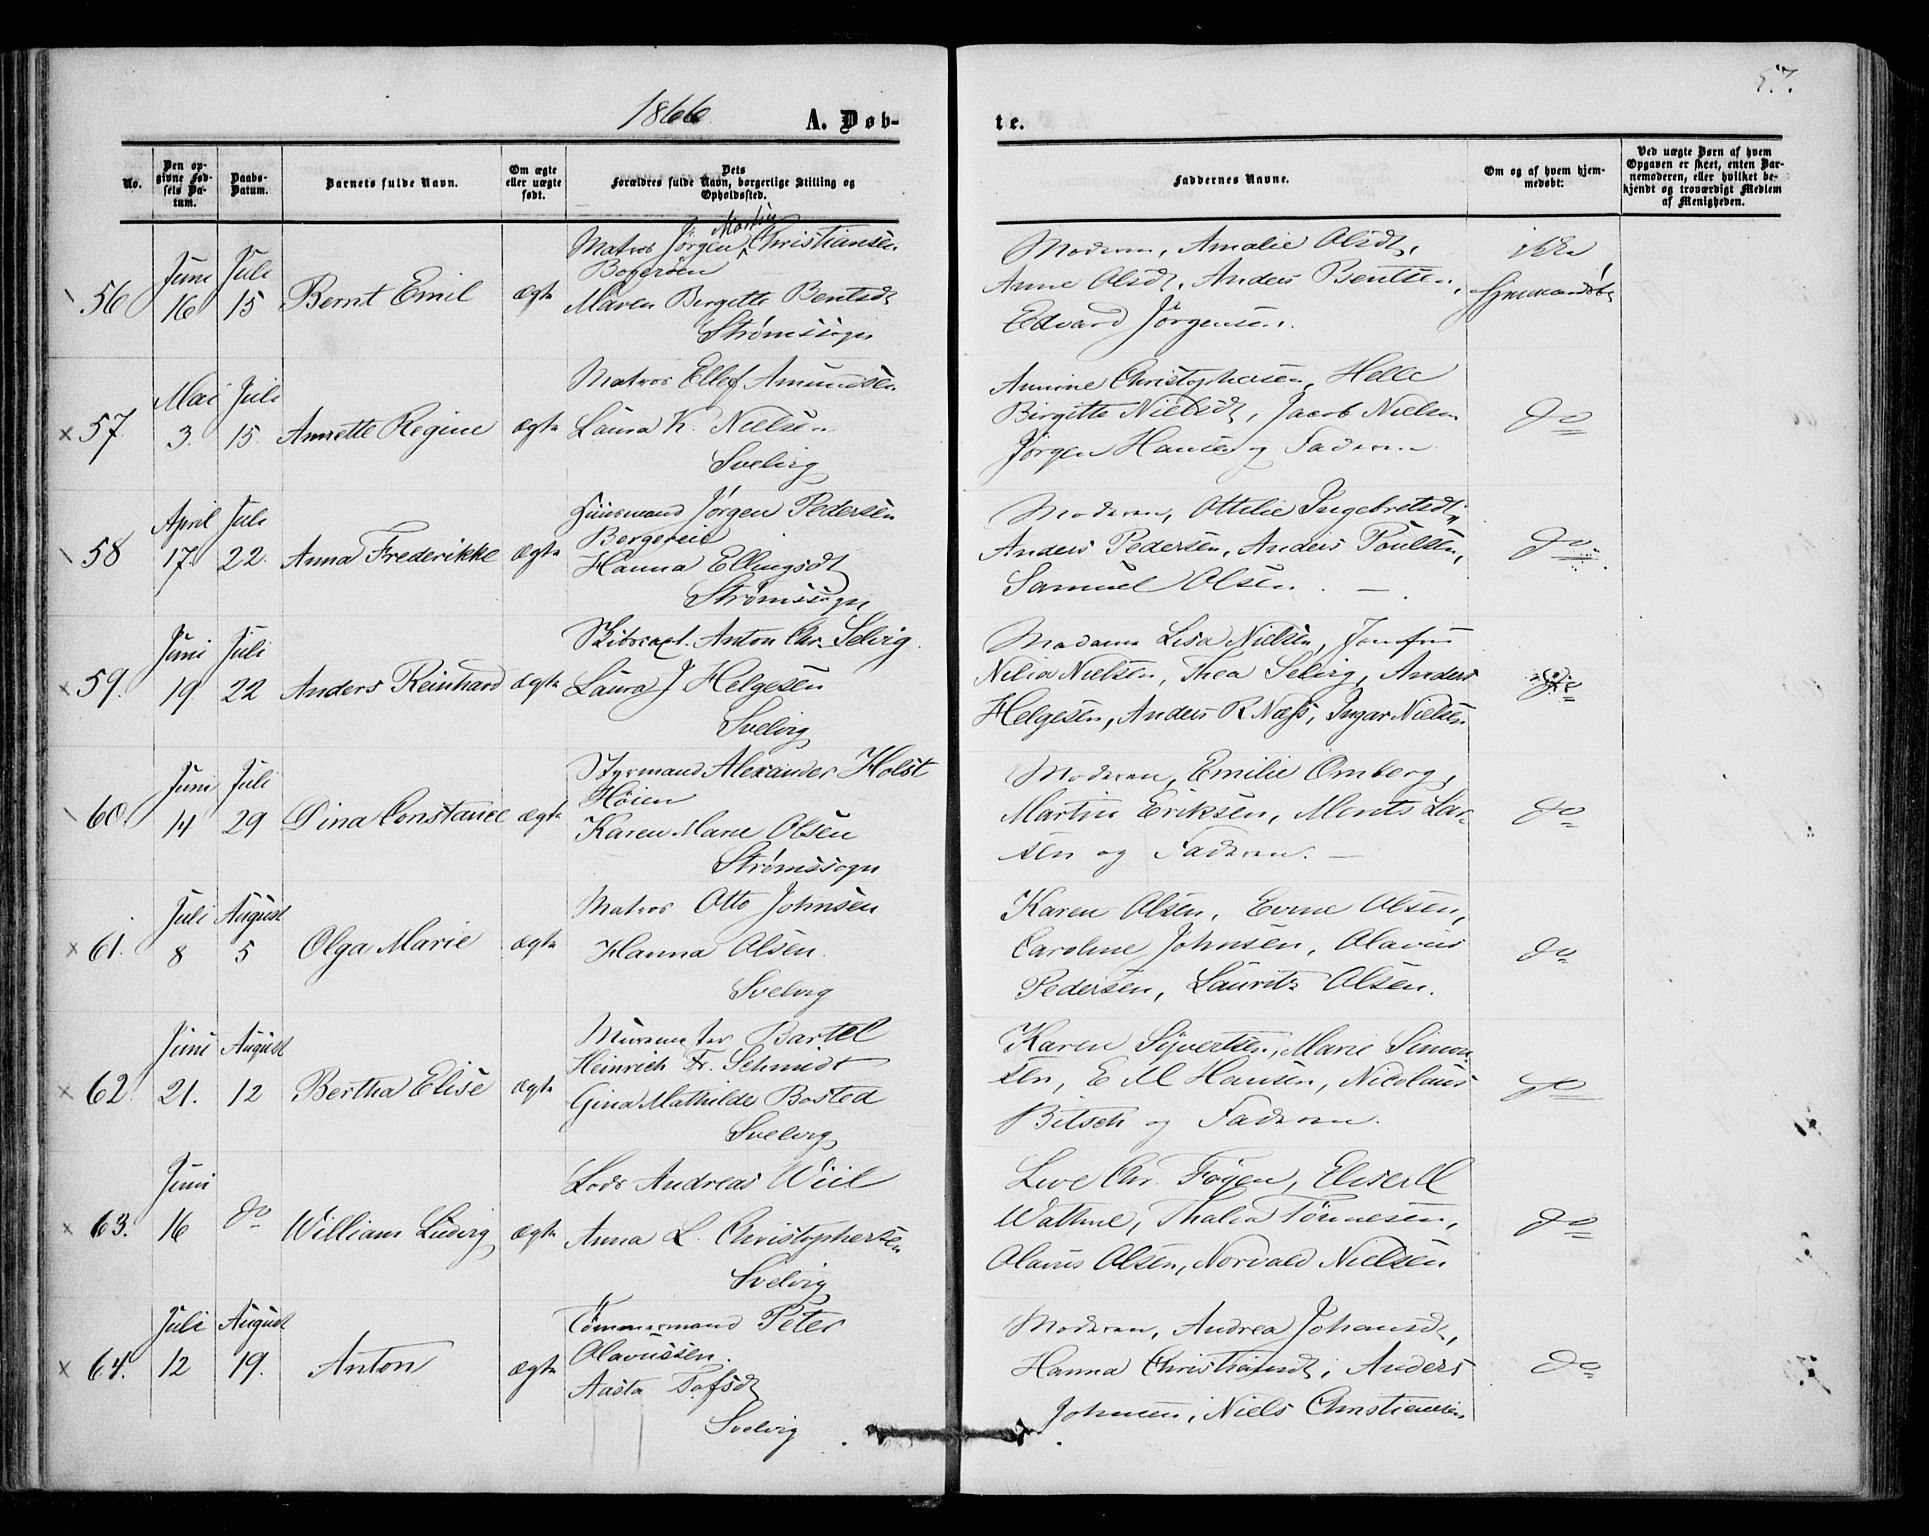 57.
1866.
A. Døb-
te.
No.
Den op-
givne Fød-
sels Da-
tum.
Daabs-
Datum.
Barnets fulde Navn.
Om ægte
eller uægte
født.
Dets
Forældres fulde Navn, borgerlige Stilling og
Opholdssted.
Faddernes Navne.
Om og af hvem hjem-
medøbt.
Ved uægte Børn af hvem
Opgaven er skeet, enten Bar-
nemoderen, eller hvilket be-
kjendt og troværdigt Medlem
af Menigheden.
56
Juni
16
Juli
15
Bernt Emil
ægte
Martin
Matros Jørgen Christiansen
Maren Birgitte Bentsdt
Strømssogn
Moderen, Amalie Olsdt,
Anne Olsdt, Anders Bentsen,
Edvard Jørgensen.
ikke
hjemmedøbt
57.
Mai
3.
Juli
15.
Annette Regine
ægte
Matros Ellef Amundsen
Laura K. Nielsen
Svelvig
Annine Christophersen, Helle
Birgitte Nielsdt, Jacob Nielsen
Jørgen Hansen og Faderen
do
58
April
17.
Juli
22.
Anna Frederikke
ægte
Huusmand Jørgen Pedersen
Bergereie
Hanna Ellingsdt
Strømssogn
Moderen, Ottilie Ingebretsdt,
Anders Pedersen, Anders Poulsen,
Samuel Olsen. —
do
59.
Juni
19.
Juli
22
Anders Reinhard
ægte
Skibscapt. Anton Chr. Selvig.
Laura J Helgesen
Svelvig
Madame Lisa Nielsen, Jomfru
Nilia Nielsen, Thea Selvig, Anders
Helgesen, Anders R Næss, Ingar Nielsen
do
60.
Juni
14
Juli
29
Dina Constance
ægte
Styrmand Alexander Holst
Høien
Karen Marie Olsen
Strømssogn
Moderen, Emilie Omberg,
Martin Eriksen, Monts Lar-
sen og Faderen. —
do
61.
Juli
8
August
5
Olga Marie
ægte
Matros Otto Johnsen
Hanna Olsen.
Svelvig
Karen Olsen, Evine Olsen,
Caroline Johnsen, Olavus
Pedersen, Lauritz Olsen.
do
62.
Juni
21.
August
12
Bertha Elise
ægte
Murmester Bartel
Heinrich Fr. Schmidt
Gina Mathilde Bosted
Svelvig
Karen Sivertsen, Marie Simon-
sen, E M Hansen, Nicolaus
Bitsch og Faderen.
do
63.
Juni
16
do
William Ludvig
ægte
Lods Andreas Wiil
Anna L. Christophersen
Svelvig
Live Chr. Føyen, Elise M
Wathne, Thalia Tønnesen,
Olavus Olsen, Norvald Nielsen
do
64.
Juli
12
August
19.
Anton
ægte
Tømmermand Peter
Olavussen.
Aasta Tofsdt
Svelvig
Moderen, Andrea Johansdt,
Hanna Christiansdt, Anders
Johnsen, Niels Christiansen
do